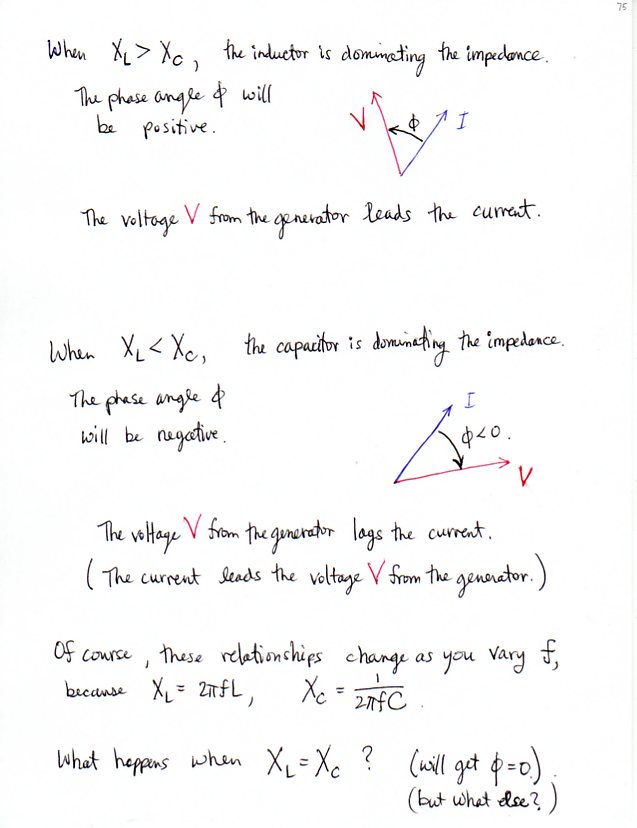 75
When X_L > X_C, the inductor is dominating the impedance.
The phase angle ϕ will
be positive.
V ϕ I
The voltage V from the generator leads the current.
When X_L < X_C, the capacitor is dominating the impedance.
The phase angle ϕ
will be negative.
I
ϕ<0.
V
The voltage V from the generator lags the current.
(The current leads the voltage V from the generator.)
Of course, these relationships change as you vary f,
because X_L = 2πfL, X_C = 1/(2πfC).
What happens when X_L = X_C ? (will get ϕ=0.)
(but what else?)